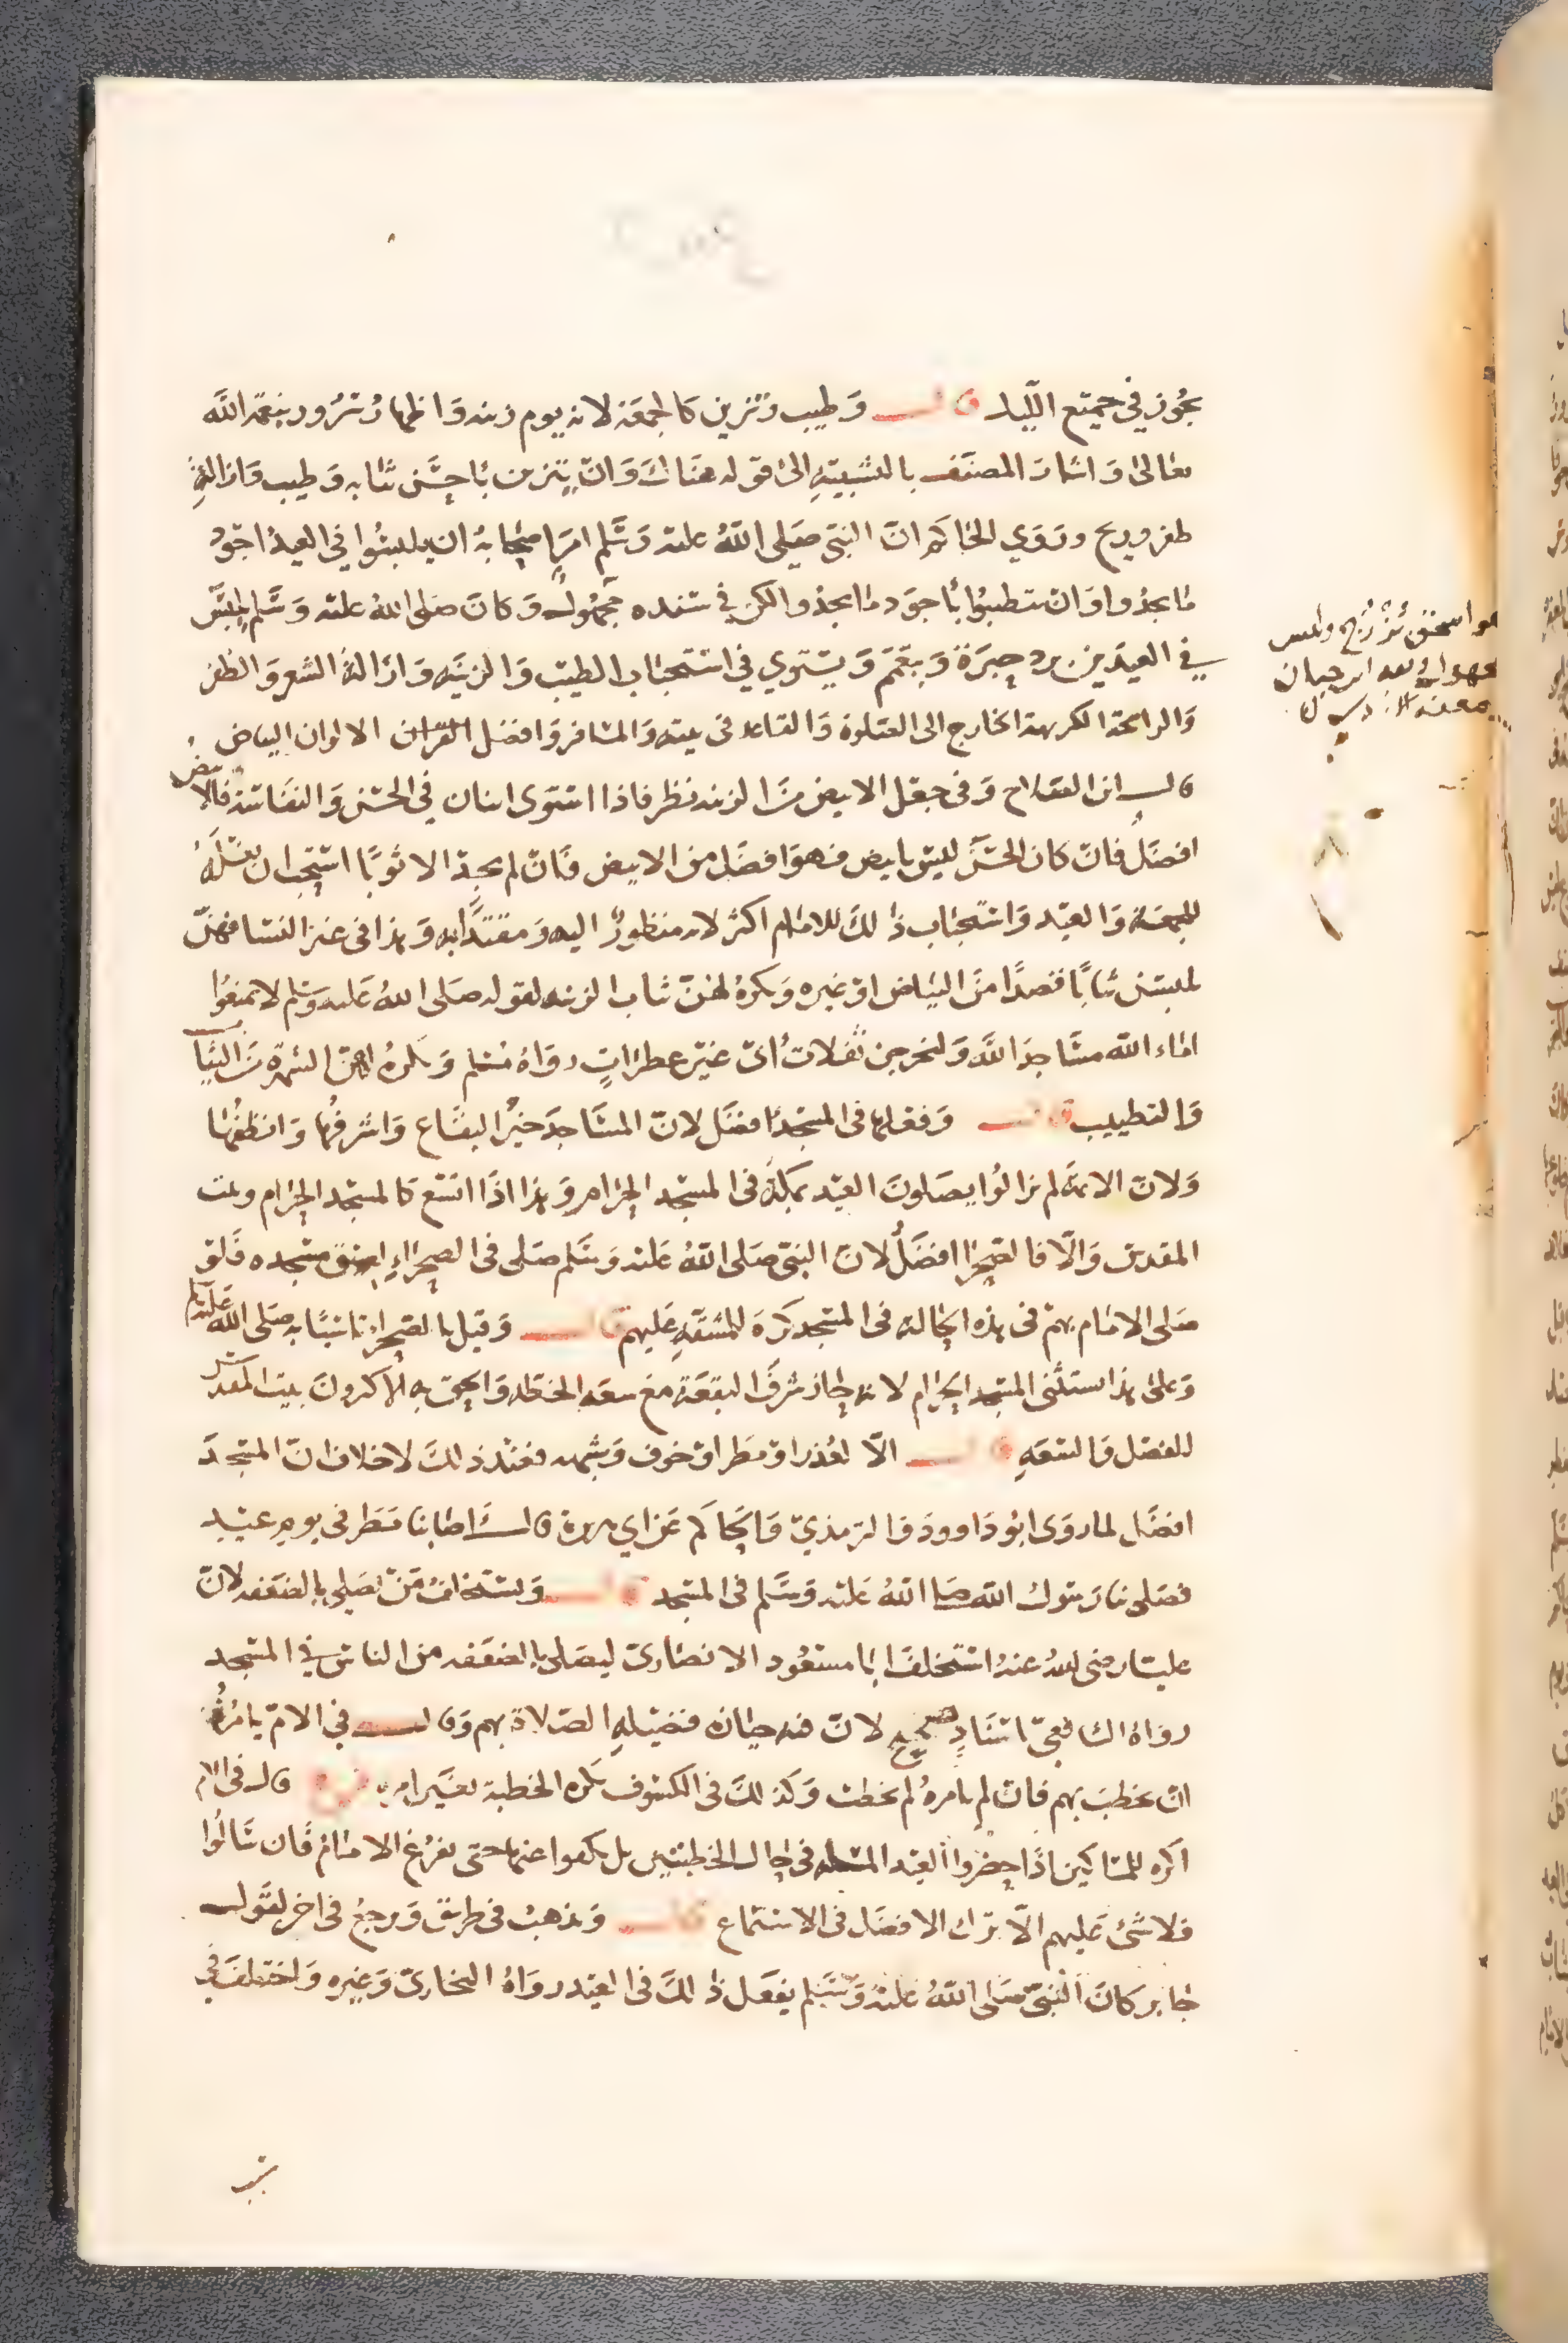 يجوز في جميع الليل قال وطيب وتزين كالجمعة لانه يوم زينة واظهار سرور بنعمة الله
تعالى واشار المصنف بالتشبيه الى قوله هناك وان يتزين باحسن ثيابه وطيب وازالة
ظفر وريح وروي الحاكم ان النبي صلى الله عليه وسلم امر اصحابه ان يلبسوا في العيد اجود
ما يجدوا وان يتطيبوا باجود ما يجدوا لكن في سنده مجهول وكان صلى الله عليه وسلم يلبس
في العيدين برد حبرة ويعتم ويستوي في استحباب الطيب والزينة وازالة الشعر والظفر
والرائحة الكريهة الخارج الى الصلوة والقاعد في بيته والمسافر وافضل الالوان البياض
قال ابن الصلاح وفي جعل الابيض من الزينة نظر فاذا استوى اثنان في الحسن والنفاسة فالابيض
افضل فان كان الحسن ليس بابيض فهو افضل من الابيض فان لم يجد الا ثوبا استحب ان يغسله
للجمعة والعيد واستحباب ذلك للامام اكثر لانه منظور اليه ومقتدا به وهذا في غير النسا فهن
يلبسن ثيابا قصدا من البياض او غيره ويكره لهن ثياب الزينة لقوله صلى الله عليه وسلم لا تمنعوا
اماء الله مساجد الله وليخرجن تفلات أي غير عطرات رواه مسلم ويكره لهن الشهرة من الثياب
والتطييب قال وفعلها في المسجد افضل لان المساجد خير البقاع واشرفها وانظفها
ولان الائمة لم يزالوا يصلون العيد بمكة في المسجد الحرام وهذا اذا اتسع كالمسجد الحرام وبيت
المقدس والا فالصحرا افضل لان النبي صلى الله عليه وسلم صلى في الصحراء لضيق مسجده فلو
صلى الامام بهم في هذه الحالة في المسجد كره للمشقة عليهم قال وقيل بالصحرا تاسيا به صلى الله عليه وسلم
وعلى هذا استثنى المسجد الحرام لانه حاز شرف البقعة مع سعة الخطة والحق به الاكثرون بيت المقدس
للفضل والسعة قال الا لعذر او مطر او خوف وشبهه فعند ذلك لا خلاف ان المسجد
افضل لما روى ابو داوود والترمذي والحاكم عن ابي هريرة قال اصابنا مطر في يوم عيد
فصلى بنا رسول الله صلى الله عليه وسلم في المسجد قال ويستخلف من يصلي بالضعفه لان
عليا رضي الله عنه استخلف ابا مسعود الانصاري ليصلي بالضعفه من الناس في المسجد
رواه الشافعي باسناد صحيح لان فيه حيازة فضيلة الصلاة بهم وقال في الام يامره
ان يخطب بهم فان لم يامره لم يخطب وكذلك في الكسوف يكره الخطبة بغير امره فرع قال في الام
اكره للمساكين اذا حضروا العيد المسلة في حال الخطبتين بل يكفوا عنها حتى يفرغ الامام فان سالوا
فلا شئ عليهم الا ترك الافضل في الاستماع قال ويذهب في طريق ويرجع في اخر لقول
جابر كان النبي صلى الله عليه وسلم يفعل ذلك في العيد رواه البخاري وغيره واختلف في